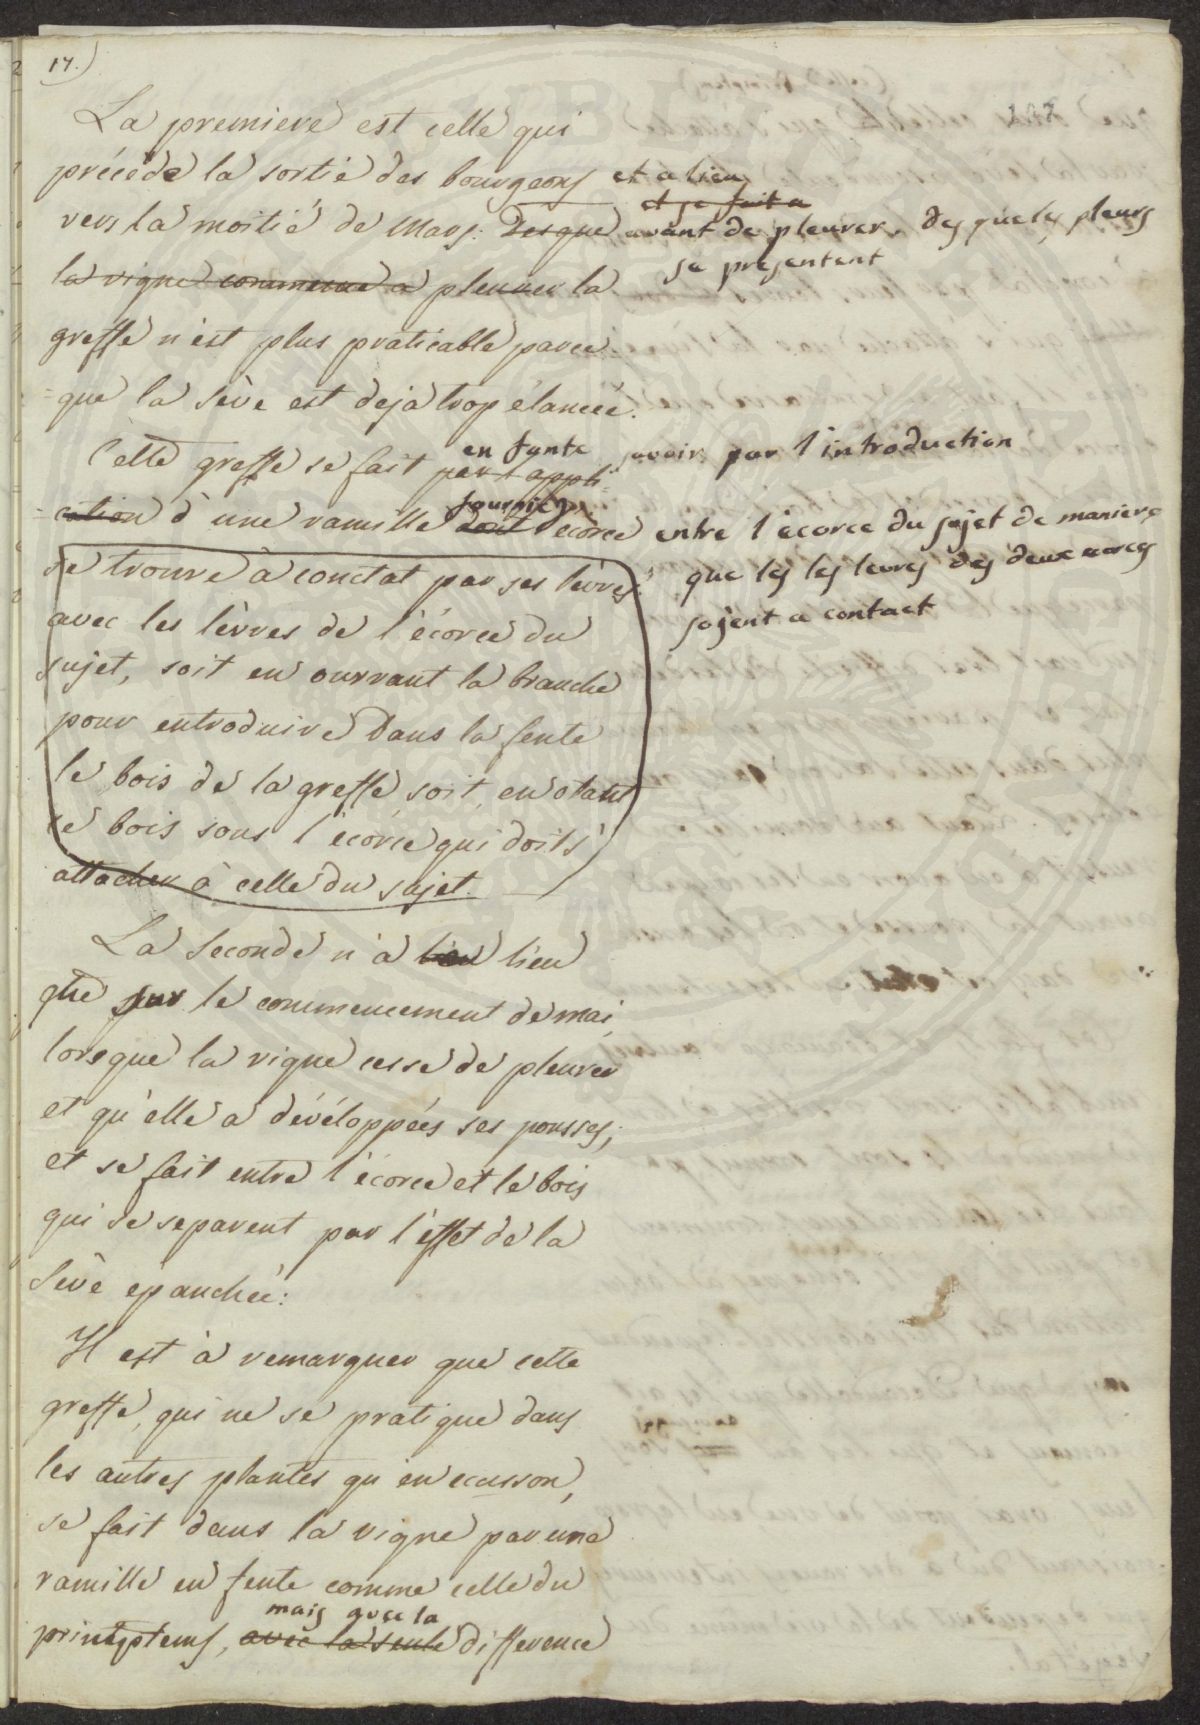 17.)
La premiere est celle qui
précéde la sortie des bourgeons et a lieu
et se fait a
vers la moitié de Mars. Desque avant de pleurer. des que les pleurs
se presentent
la vigne commence a pleurer la
greffe n'est plus praticable parce
= que la sève est deja trop élancée.
en fante
Cette greffe se fait par l'appli= savoir par l'introduction
fournie
= cation d'une ramille dont l'ecorce entre l'ecorce du sujet de maniere
se trouve à conctat par ses lèvres que les les levres des deux ecorces
sojent a contact
avec les lèvres de l'écorce du
sujet, soit en ouvrant la branche
pour entroduire dans la fente
le bois de la greffe soit, en otant
le bois sous l'ecorce qui doit s'
attacher à celle du sujet.
La seconde n'a lieu lieu
que sur le commencement de mai,
lorsque la vigne cesse de pleurer
et qu'elle a dévéloppées ses pousses;
et se fait entre l'ecorce et le bois
qui se separent par l'effet de la
Sève epanchée:
Il est à remarquer que cette
greffe, qui ne se pratique dans
les autres plantes qu'en ecusson,
se fait dans la vigne par une
ramille en fente comme celle du
mais avec la
printemptems, avec la seule difference